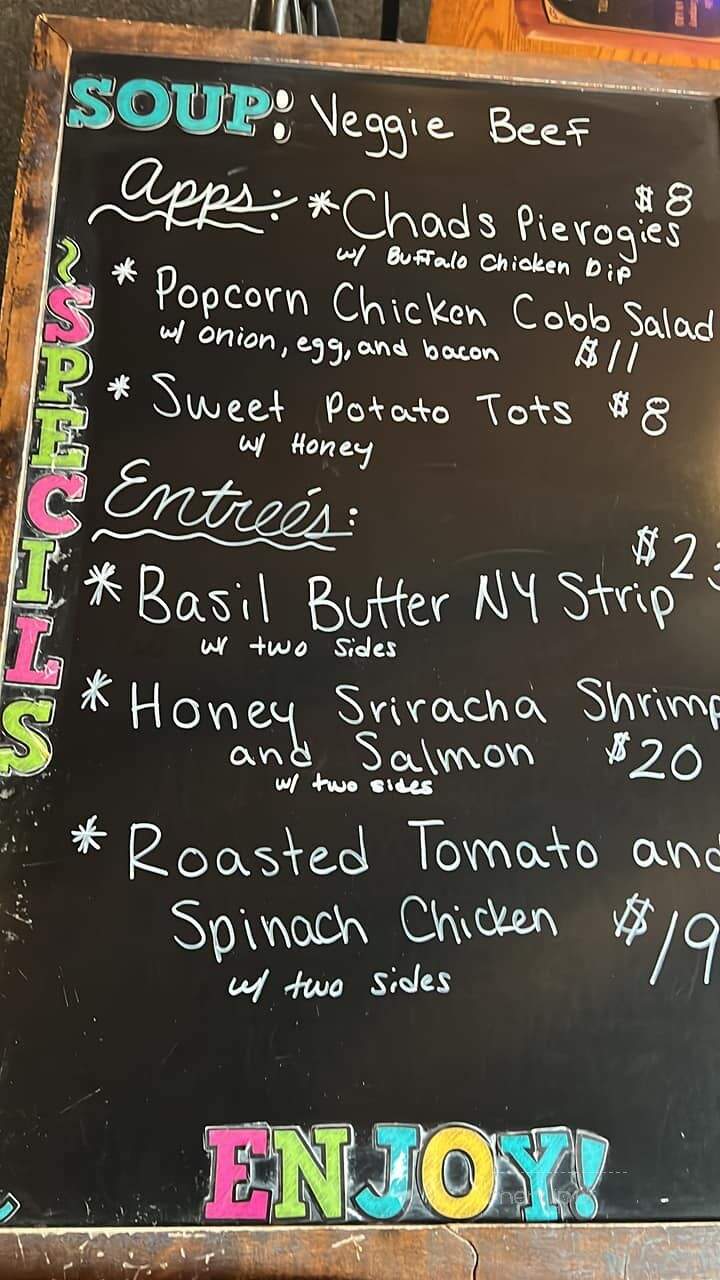 SOUP: Veggie Beef
Apps: * Chads Pierogies $8
w/ Buffalo Chicken Dip
* Popcorn Chicken Cobb Salad
w/ onion, egg, and bacon $11
* Sweet Potato Tots $8
w/ Honey
~SPECILS
Entreés:
* Basil Butter NY Strip
w/ two sides
* Honey Sriracha Shrimp
and Salmon $20
w/ two sides
* Roasted Tomato and
Spinach Chicken $19
w/ two sides
ENJOY!